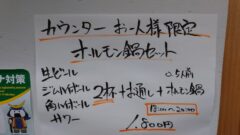 カウンターお一人様限定
ホルモン鍋セット
生ビール
0.5人前
ジムハイボール
2杯+お通し+ホルモン鍋
角ハイボール
サワー
1.800円
ナ対策